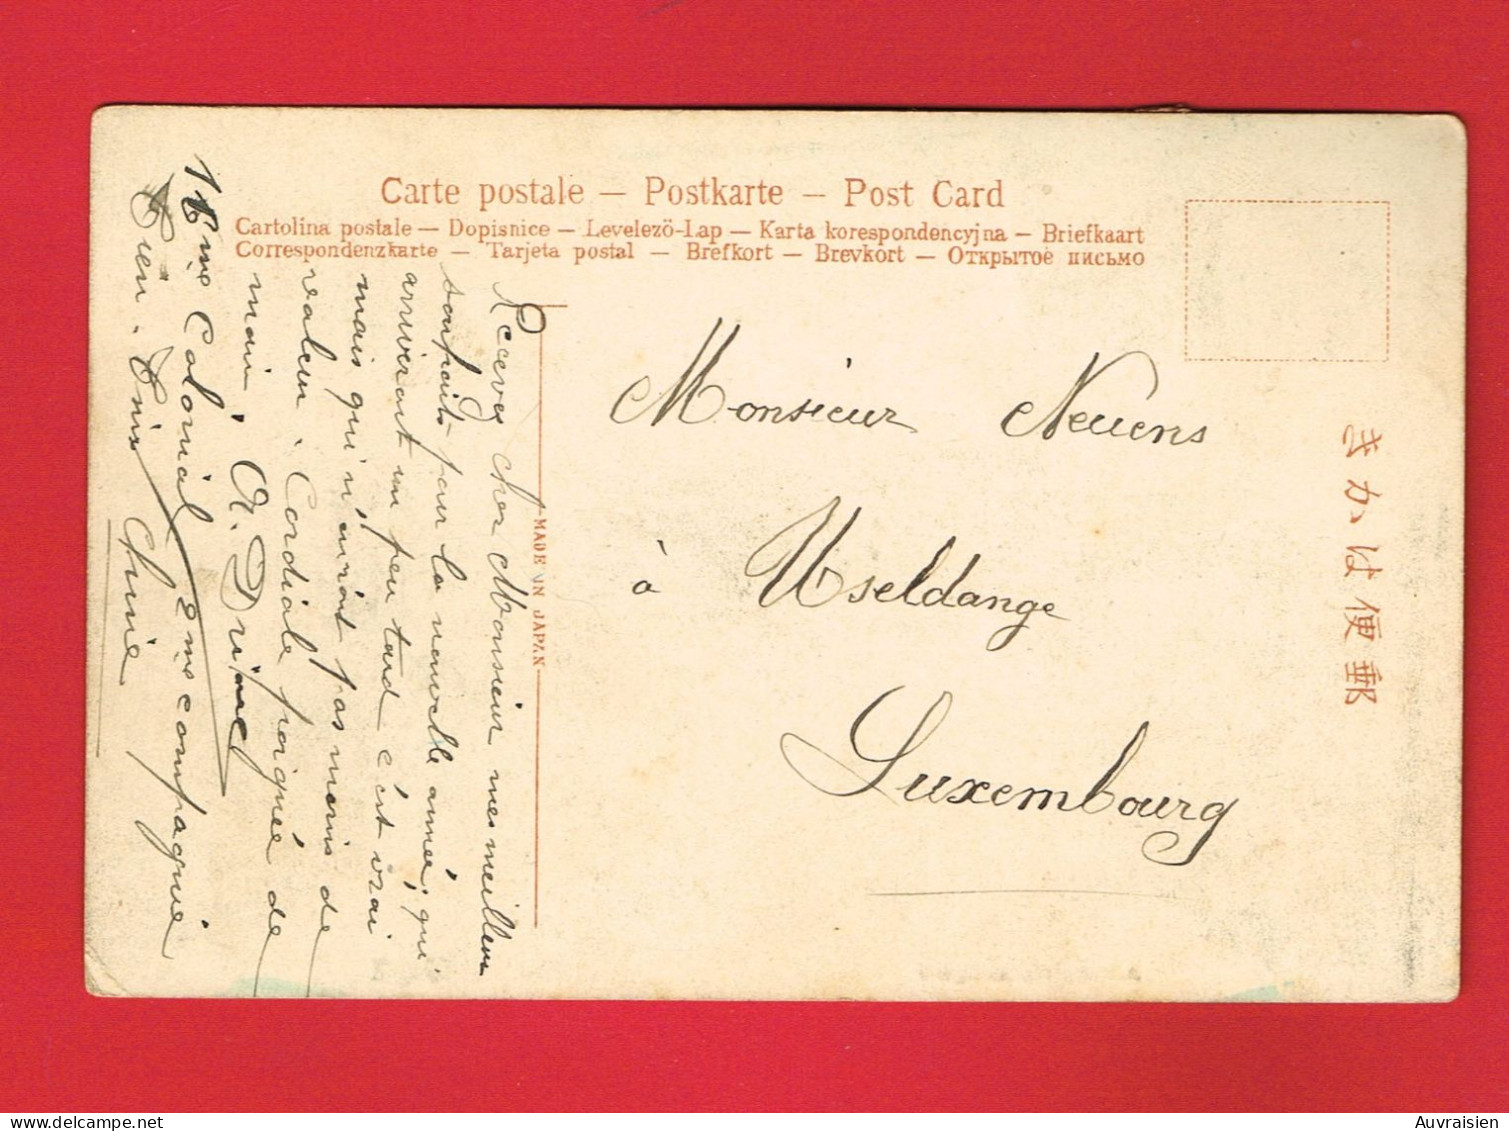 Carte postale — Postkarte — Post Card
Cartolina postale — Dopisnice — Levelezö-Lap — Karta korespondencyjna — Briefkaart
Correspondenzkarte — Tarjeta postal — Brefkort — Brevkort — Открытое письмо
Recevez cher Monsieur mes meilleurs
souhaits pour la nouvelle année, qui
arriveront un peu tard c'est vrai
mais qui n'auront pas moins de
valeur. Cordiale poignée de
main.
16me Colonial 2me compagnie
Tien. Tsin Chine
MADE IN JAPAN
Monsieur Neuens
à Useldange
Luxembourg
きかは便郵
Auvraisien